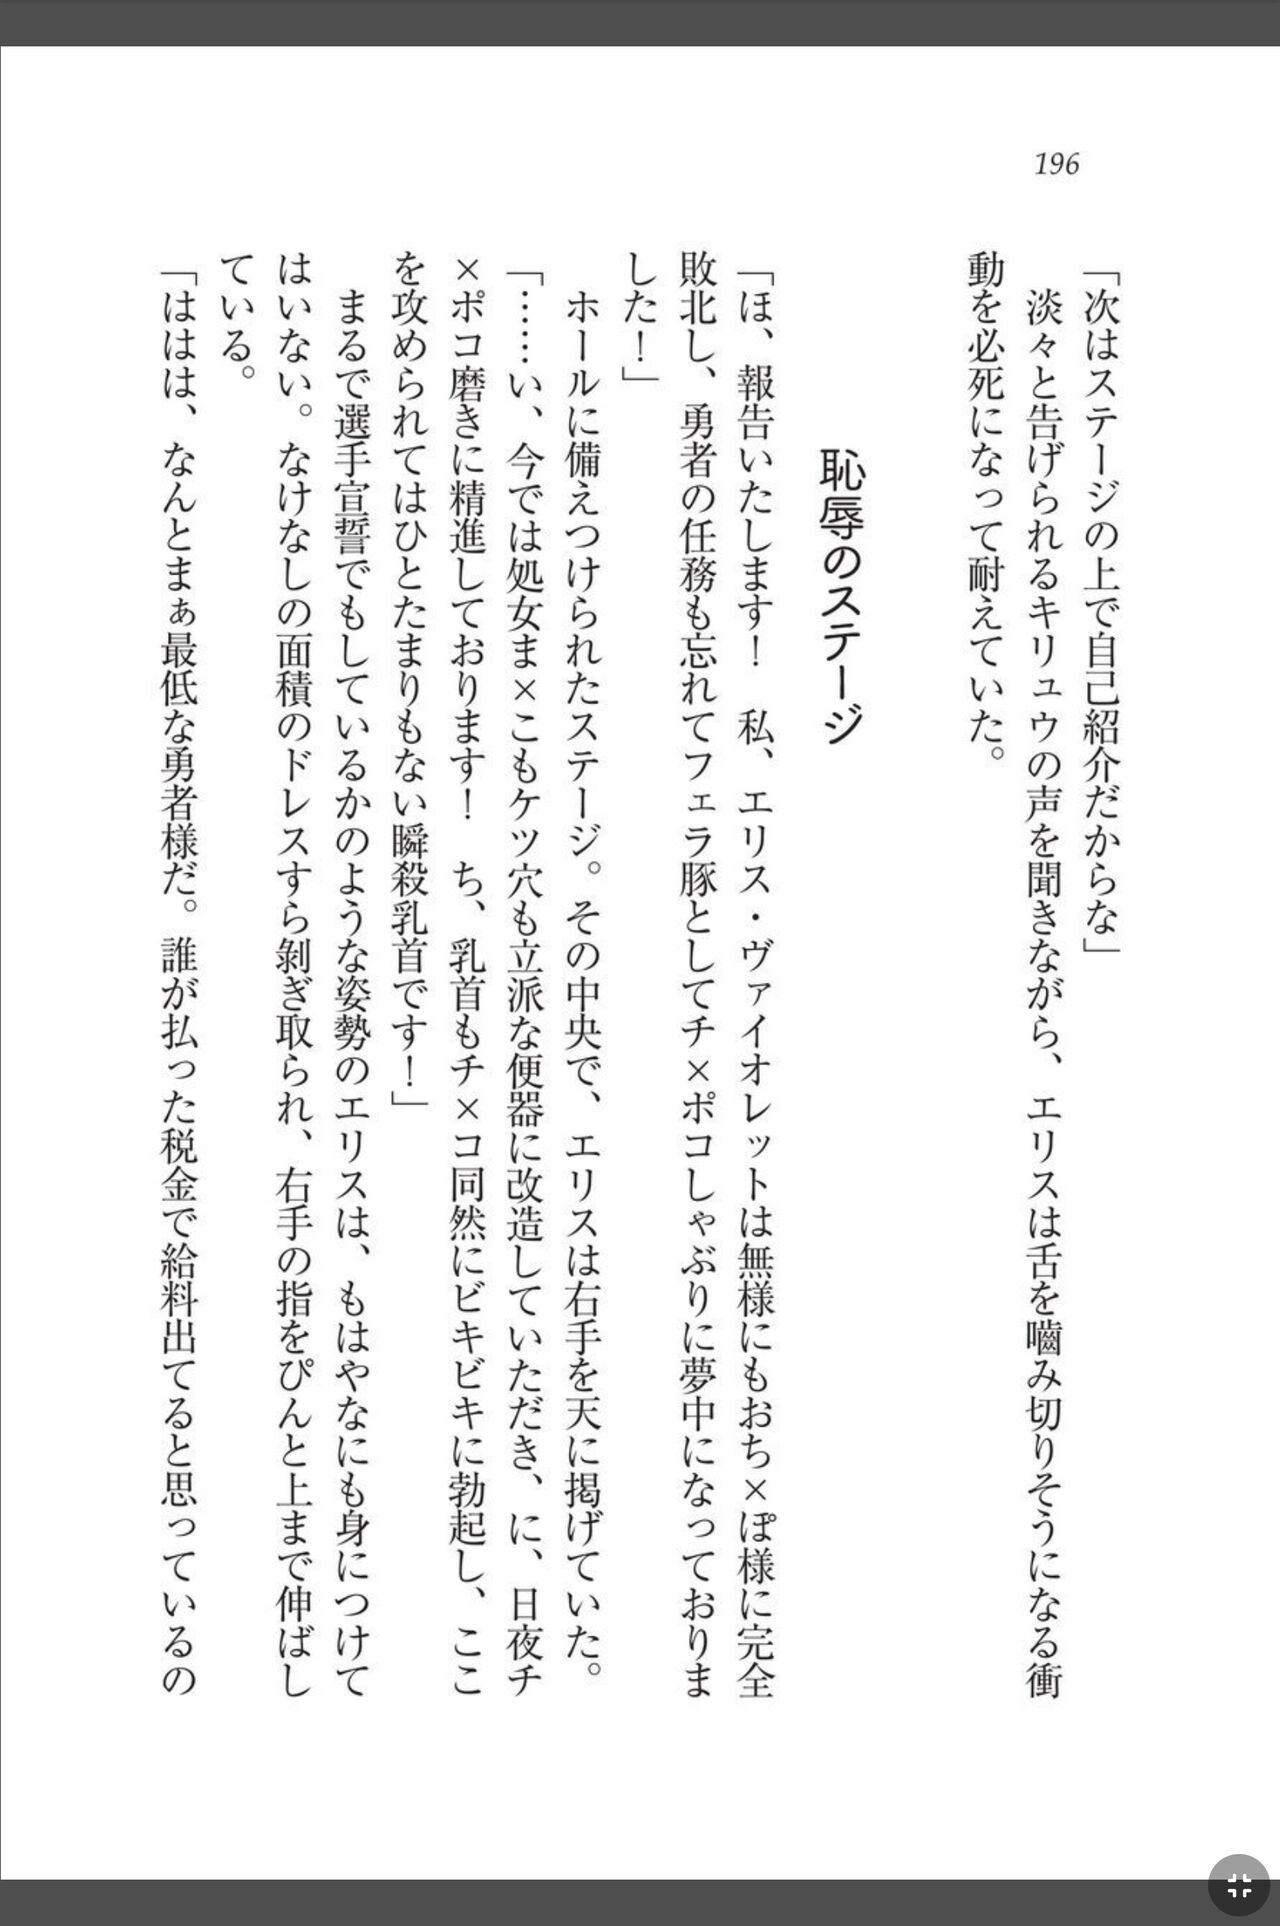 196
「次はステージの上で自己紹介だからな」
　淡々と告げられるキリュウの声を聞きながら、エリスは舌を嚙み切りそうになる衝
動を必死になって耐えていた。
恥辱のステージ
「ほ、報告いたします！　私、エリス・ヴァイオレットは無様にもおち×ぽ様に完全
敗北し、勇者の任務も忘れてフェラ豚としてチ×ポコしゃぶりに夢中になっておりま
した！」
　ホールに備えつけられたステージ。その中央で、エリスは右手を天に掲げていた。
「……い、今では処女ま×こもケツ穴も立派な便器に改造していただき、に、日夜チ
×ポコ磨きに精進しております！　ち、乳首もチ×コ同然にビキビキに勃起し、ここ
を攻められてはひとたまりもない瞬殺乳首です！」
　まるで選手宣誓でもしているかのような姿勢のエリスは、もはやなにも身につけて
はいない。なけなしの面積のドレスすら剝ぎ取られ、右手の指をぴんと上まで伸ばし
ている。
「ははは、なんとまぁ最低な勇者様だ。誰が払った税金で給料出てると思っているの